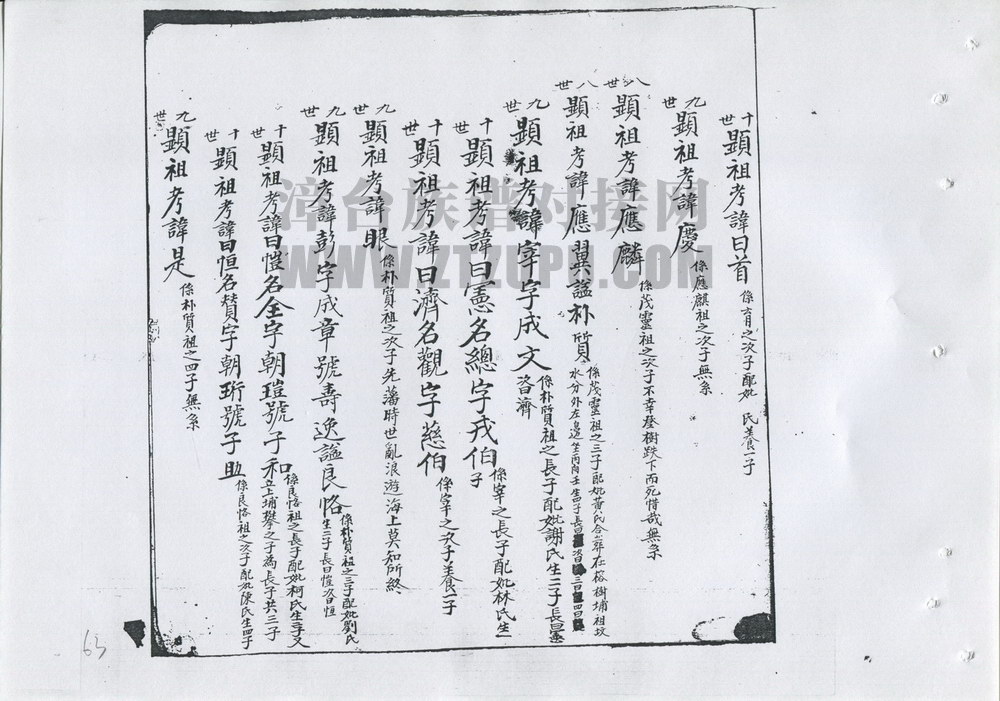 十世 顯祖考諱曰首 係育之次子配妣 民養一子
九世 顯祖考諱慶 係應麒祖之次子無系
八世 顯祖考諱應麟 係茂靈祖之次子不幸登樹跌下而死惜哉無系
八世 顯祖考諱應翼謚朴質 係茂靈祖之三子配妣黃氏合葬在榕樹埔祖坟
水分外左邊坐丙向壬生四子長曰 次曰 三曰 四曰
九世 顯祖考諱宰字成文 係朴質祖之長子配妣謝氏生二子長曰憲
次濟
十世 顯祖考諱曰憲名總字戎伯 係宰之長子配妣林氏生一
子
十世 顯祖考諱曰濟名觀字慈伯 係宰之次子養二子
九世 顯祖考諱眼 係朴質祖之次子先藩時世亂浪遊海上莫知所終
九世 顯祖考諱彭字成章號壽逸謚良恪 係朴質祖之三子配妣劉氏
生二子長曰愷次曰恒
十世 顯祖考諱曰愷名全字朝瑄號子和 係良恪祖之長子配妣柯氏生二子又
立上埔攀之子為長子共三子
十世 顯祖考諱曰恒名贊字朝珩號子助 係良恪祖之次子配妣陳氏生四子
九世 顯祖考諱是 係朴質祖之四子無系
漳台族谱对接网
WWW.ZTZUPU.COM
63